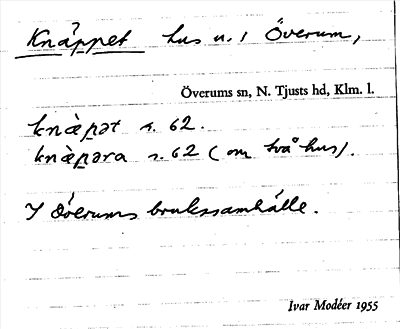 Knäppet hus n. i Överum,
Överums sn, N. Tjusts hd, Klm. l.
knæ̀p̱ət s. 62.
knæ̀p̱əra s. 62 (om två hus).
I Överums brukssamhälle.
Ivar Modéer 1955